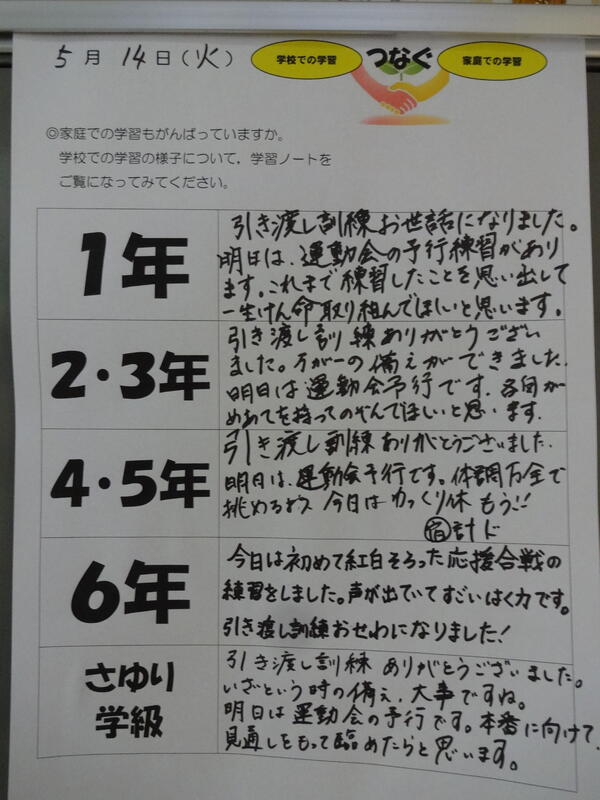 5月 14日(火)
学校での学習 つなぐ 家庭での学習
◎家庭での学習もがんばっていますか。
学校での学習の様子について,学習ノートを
ご覧になってみてください。
1年
引き渡し訓練お世話になりました。
明日は、運動会の予行練習があり
ます。これまで練習したことを思い出して
一生けん命取り組んでほしいと思います。
2・3年
引き渡し訓練ありがとうござい
ました。万が一の備えができました。
明日は運動会予行です。各自が
めあてを持ってのぞんでほしいと思います。
4・5年
引き渡し訓練ありがとうございました。
明日は、運動会予行です。体調万全で
挑めるよう 今日はゆっくり休もう!!
宿計ド
6年
今日は初めて紅白そろった応援合戦の
練習をしました。声が出ていてすごいはく力です。
引き渡し訓練おせわになりました!
さゆり
学級
引き渡し訓練 ありがとうございました。
いざという時の備え、大事ですね。
明日は運動会の予行です。本番に向けて、
見通しをもって臨めたらと思います。